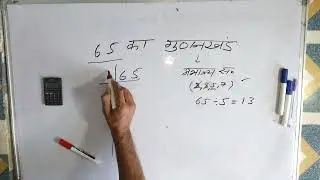 65 का गुणनखंड
65
अभाज्य सं.
(2,3,5,7)
65 ÷ 5 = 13